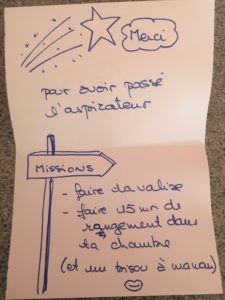 Merci
pour avoir passé
l'aspirateur
MISSIONS
- faire ta valize
- faire 15 mn de
rangement dans
ta chambre
(et un bisou à maman)